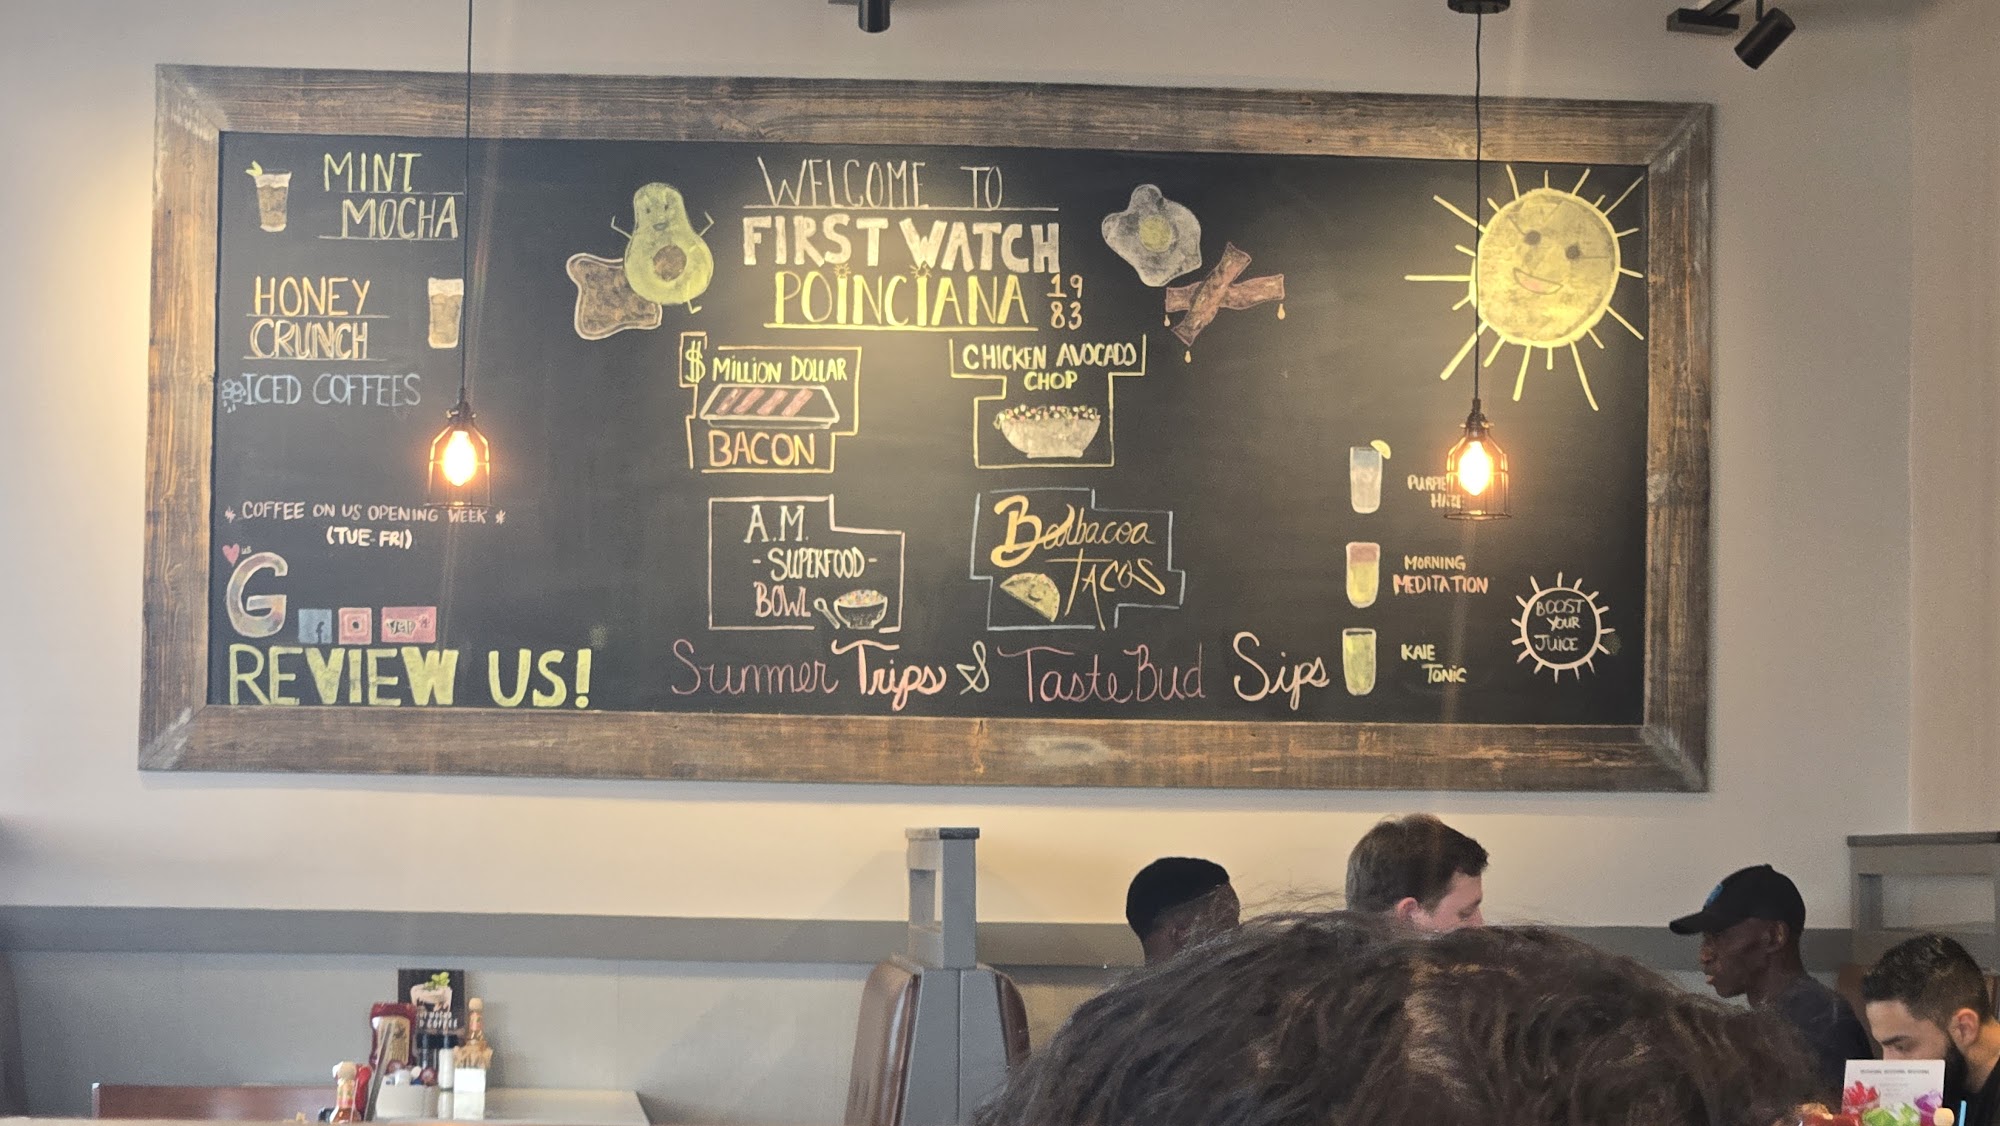 MINT
MOCHA
HONEY
CRUNCH
ICED COFFEES
* COFFEE ON US OPENING WEEK *
(TUE-FRI)
us
G
f
yelp
REVIEW US!
WELCOME TO
FIRST WATCH
POINCIANA
19
83
$ MILLION DOLLAR
BACON
CHICKEN AVOCADO
CHOP
A.M.
- SUPERFOOD -
BOWL
Barbacoa
TACOS
Summer Trips & Taste Bud Sips
MORNING
MEDITATION
KALE
TONIC
BOOST
YOUR
JUICE